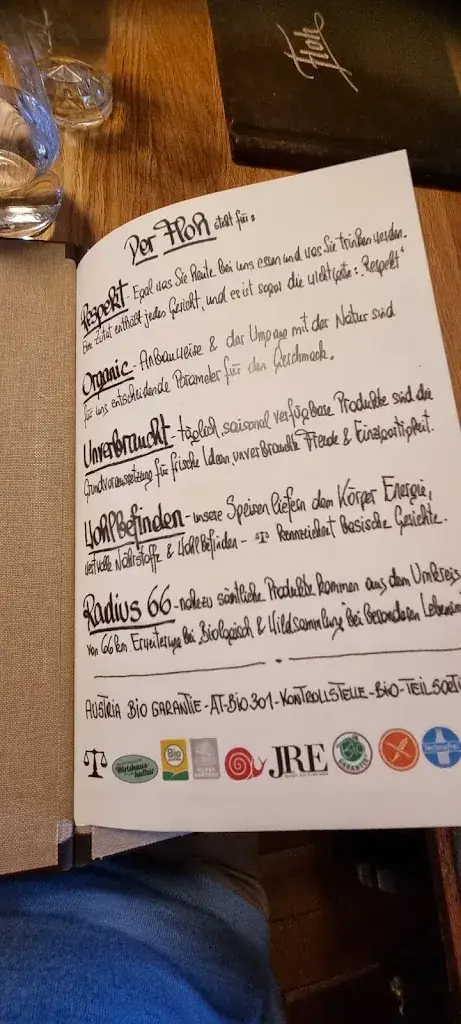 Floh
Der Floh steht für:
Respekt - Egal was Sie heute bei uns essen und was Sie trinken werden.
Eine Zutat enthält jedes Gericht, und es ist sogar die wichtigste: "Respekt"
Organic - Anbauweise & der Umgang mit der Natur sind
für uns entscheidende Parameter für den Geschmack.
Unverbraucht - täglich, saisonal verfügbare Produkte sind die
Grundvoraussetzung für frische Ideen, unverbrauchte Freude & Einzigartigkeit.
Wohlbefinden - unsere Speisen liefern dem Körper Energie,
wertvolle Nährstoffe & Wohlbefinden - kennzeichnet basische Gerichte.
Radius 66 - nahezu sämtliche Produkte kommen aus dem Umkreis
von 66 km. Erweiterung bei "Biologisch & Wildsammlung" bei besonderen
AUSTRIA BIO GARANTIE - AT-BIO 301 - KONTROLLSTELLE - BIO - TEILSORTI
Wirtshaus kultur
Bio
JRE